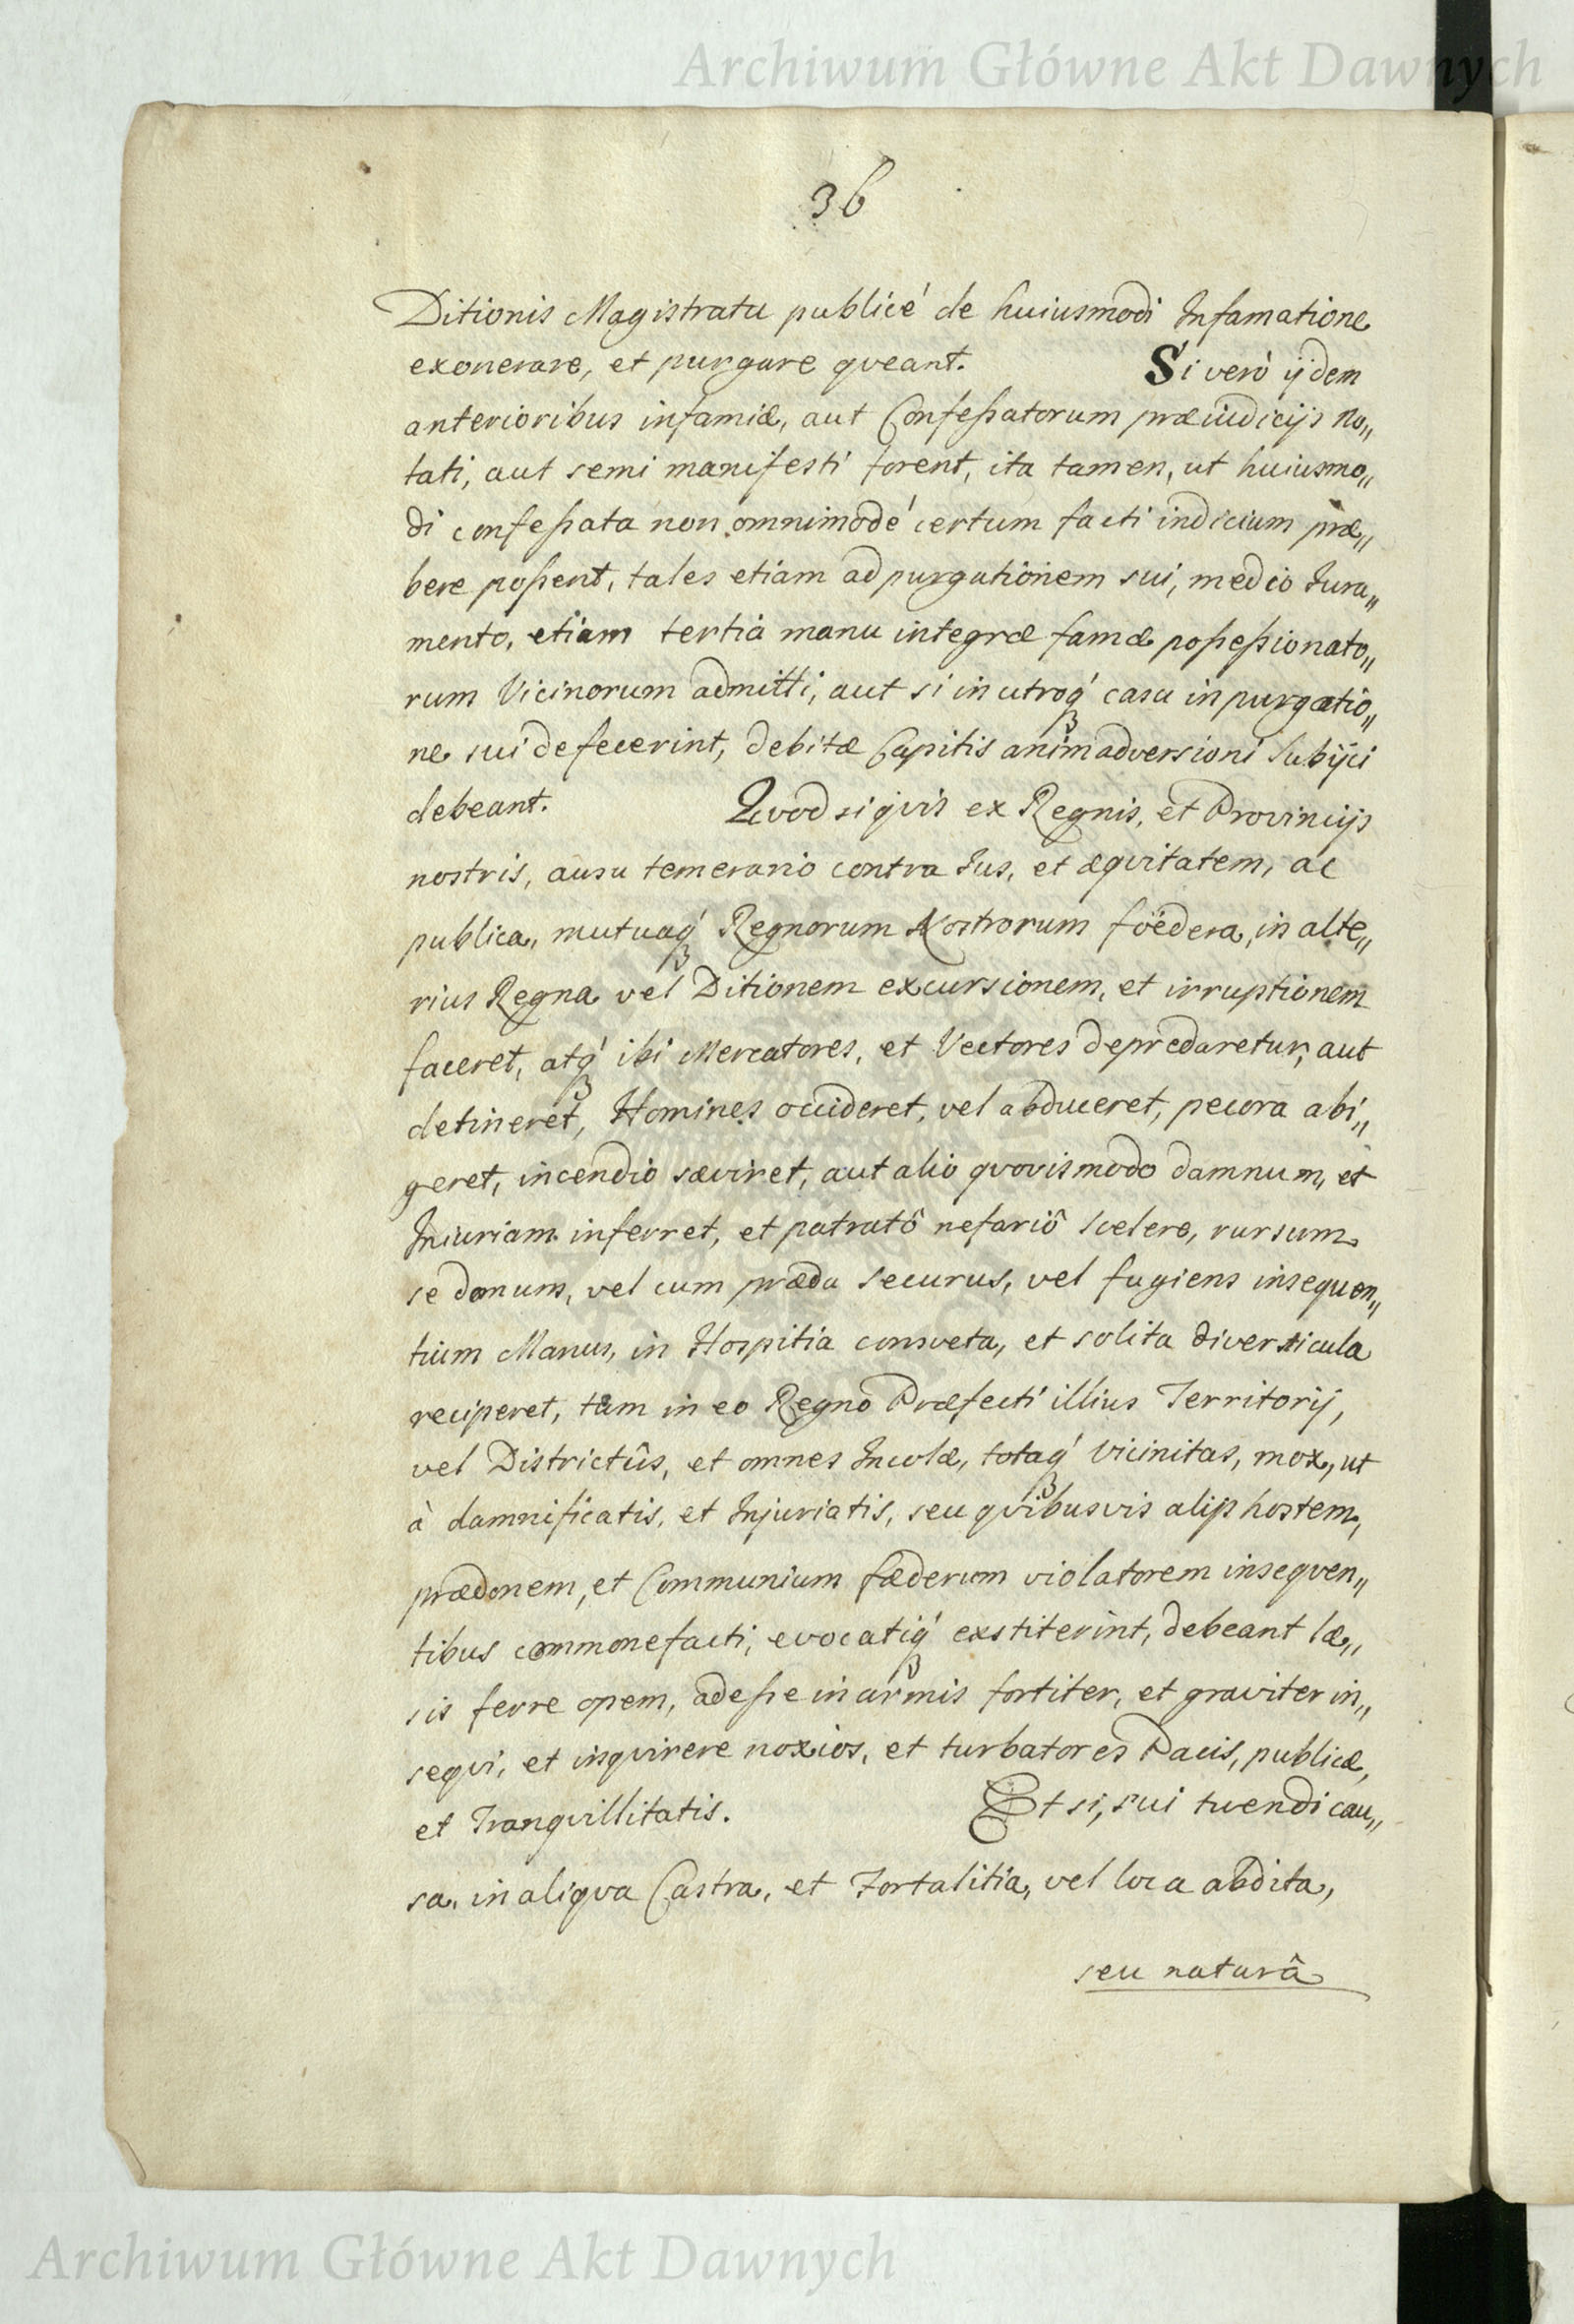 Archiwum Główne Akt Dawnych
36
Ditionis Magistratu publicé de huiusmodi Infamatione
exonerare, et purgare qveant. Si veró ijdem
anterioribus infamiæ, aut Confeßatorum præiudicijs no„
tati, aut semi manifesti forent, ita tamen, ut huiusmo„
di confeßata non omnimodé certum facti indicium præ„
bere poßent, tales etiam ad purgationem sui, medio Iura„
mento, etiam tertia manu integræ famæ poßeßionato„
rum Vicinorum admitti, aut si in utroq́ casu in purgatio„
ne sui defecerint, debitæ Capitis animadversioni Subijci
debeant. Qvod si qvis ex Regnis, et Provincijs
nostris, ausu temerario contra Ius, et æqvitatem, ac
publica, mutuaq́ Regnorum Nostrorum föedera, in alte„
rius Regna vel Ditionem excursionem, et irruptionem
faceret, atq́ ibi Mercatores, et Vectores deprædaretur, aut
detineret, Homines occideret, vel abduceret, pecora abi„
geret, incendio sæviret, aut alio qvovismodo damnum, et
Iniuriam inferret, et patratô nefariô Scelere, rursum
se domum, vel cum præda Securus, vel fugiens insequen„
tium Manus, in Hospitia consveta, et solita diversicula
reciperet, tum in eo Regno Præfecti illius Territorij,
vel Districtûs, et omnes Incolæ, totaq́ Vicinitas, mox, ut
à damnificatis, et Injuriatis, seu qvibusvis alijs hostem,
prædonem, et Communium fæderum violatorem inseqven„
tibus commonefacti, evocatiq́ exstiterint, debeant læ„
sis ferre opem, adeße in armis fortiter, et graviter in„
seqvi, et inqvirere noxios, et turbatores Pacis, publicæ,
et Tranqvillitatis. Et si, sui tuendi cau„
sa, in aliqva Castra, et Fortalitia, vel loca abdita,
seu naturâ
Archiwum Główne Akt Dawnych